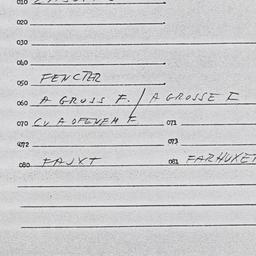 010
020
030
040
050 FENCTER
060 A GRUSS F. / A GROSSE E
070 CU A OFENEM F 071
072 073
080 FAUXT 081 FARHUXET